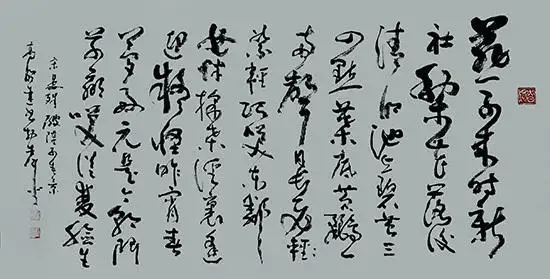 燕子来时新
社梨花落后
清明池上碧苔三
四点叶底黄鹂一
两声日长飞
絮轻巧笑东邻女
伴采桑径里逢
迎疑怪昨宵春
梦好元是今朝斗
草赢笑从双脸生
宋晏殊破阵子春景